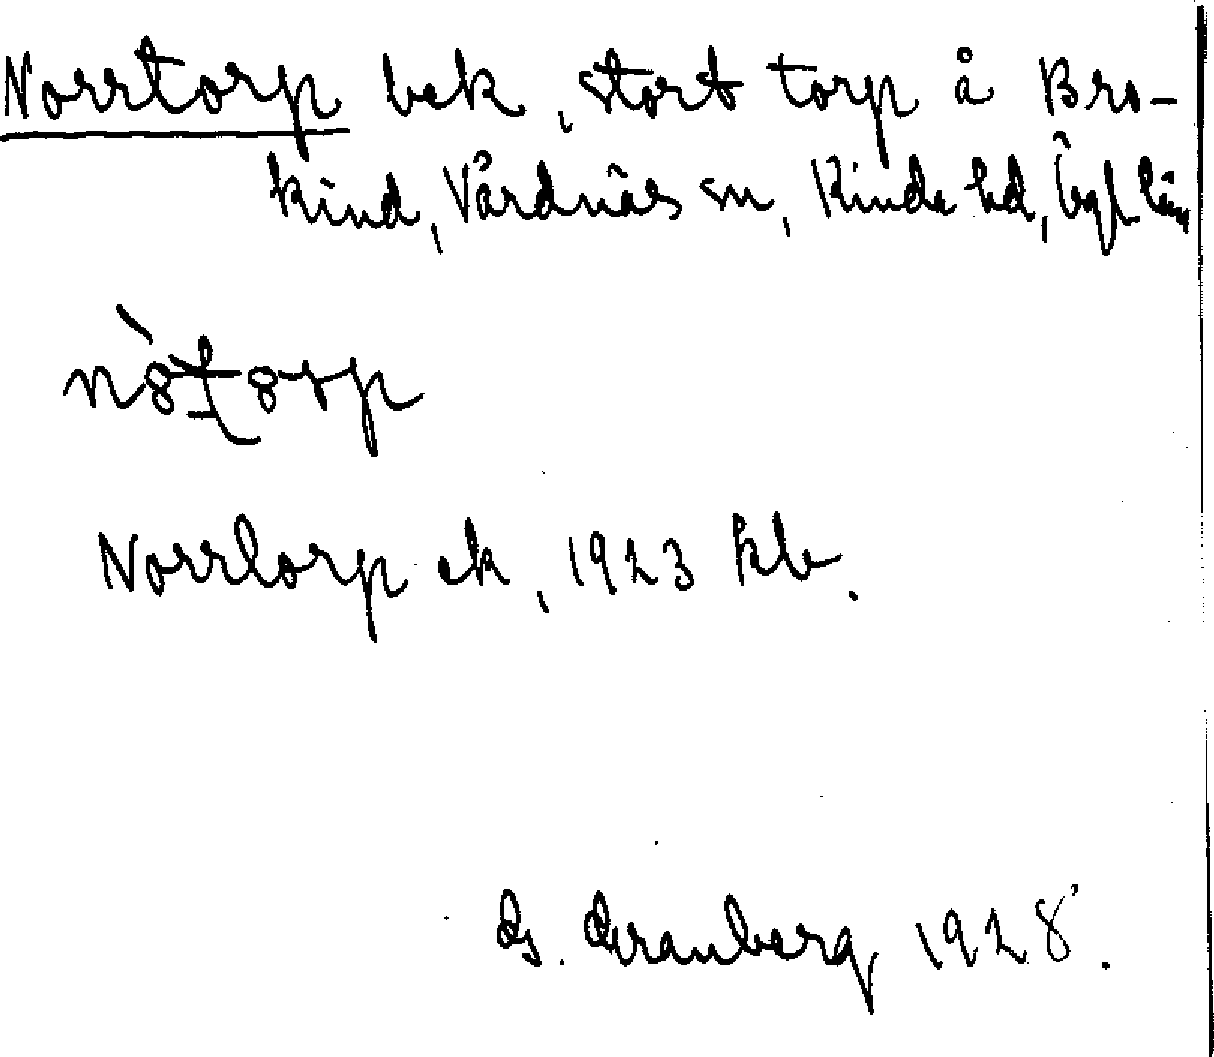 Norrtorp bek, stort torp å Bro-
kind, Vårdnäs sn, Kinda hd, Ögl län
Norrtorp ek, 1923 kb.
G. Granberg 1928.